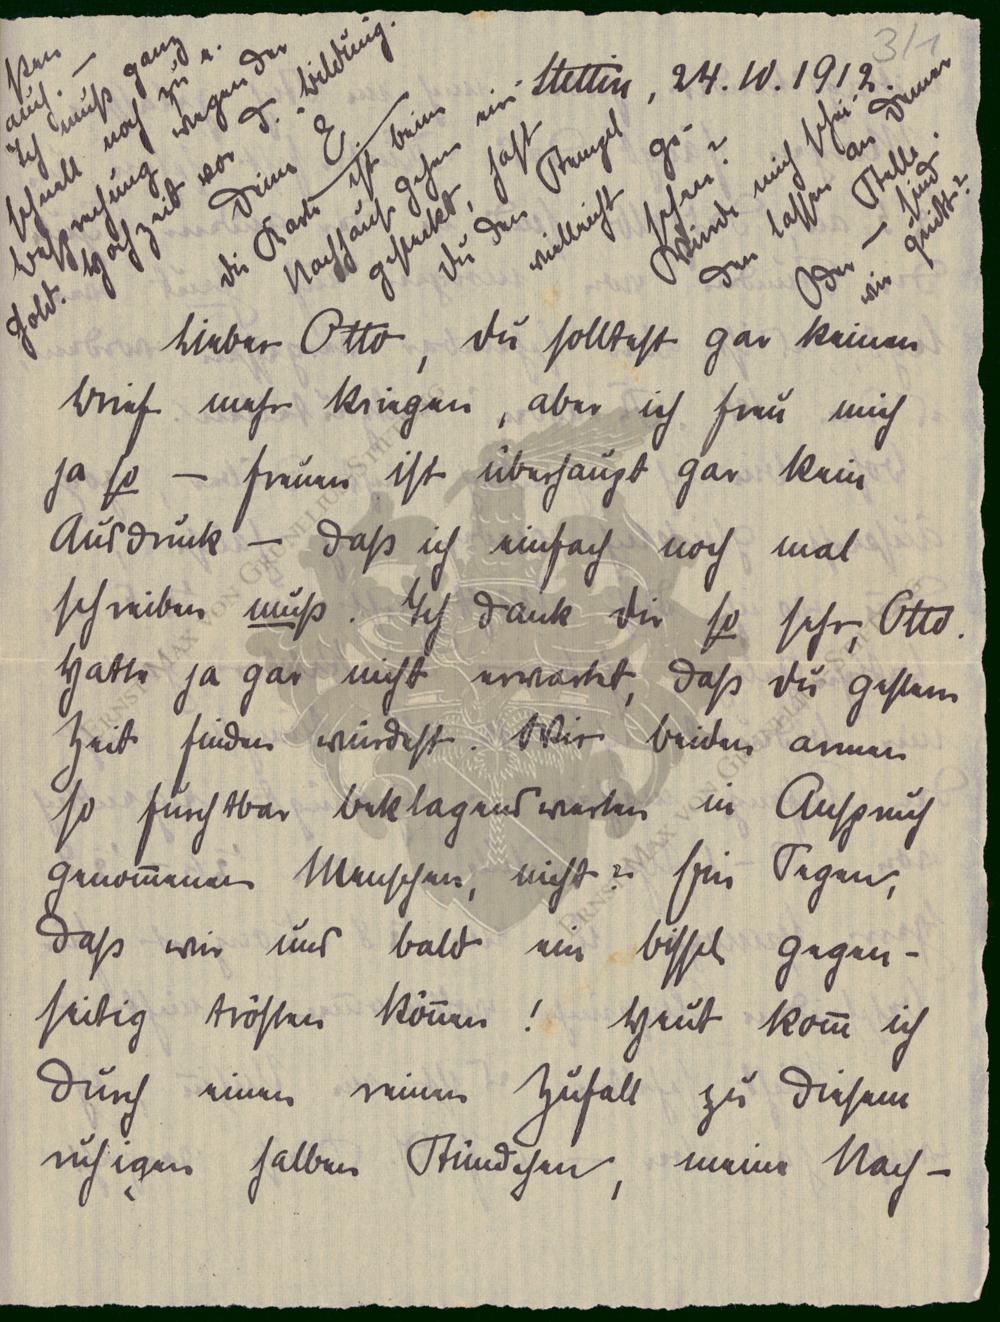 Stettin, 24.10.1912.
Lieber Otto, du solltest gar keinen
Brief mehr kriegen, aber ich freu mich
ja so – freuen ist überhaupt gar kein
Ausdruck – daß ich einfach noch mal
schreiben muß. Ich dank dir so sehr, Otto.
Hatte ja gar nicht erwartet, daß du gestern
Zeit finden würdest. Wir beiden armen
so furchtbar beklagenswerten in Anspruch
genom̅enen Menschen, nicht? Ein Segen,
daß wir uns bald ein bissel gegen-
seitig trösten kön̅en! Heut kom̅ ich
durch einen reinen Zufall zu diesem
ruhigen halben Stündchen, meine Nach-
auch. –
Ich muß ganz
schnell noch zu e.
Besprechung wegen der
gold. Hochzeit vor d. -bildung.
Deine E.
die Karte ist beim
Nachhaus gehen ein-
gesteckt, hast
du den Stempel
vielleicht ge-
sehen?
Würde mich schei-
den lassen an Deiner
Stelle.
Oder – sind
wir quitt?
3/1
ERNST MAX VON GRUNELIUS-STIFTUNG
ERNST MAX VON GRUNELIUS-STIFTUNG